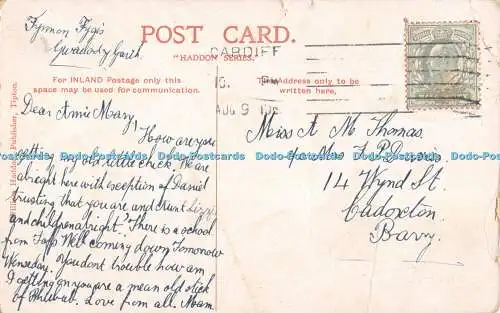 Fynnon Fygis
Gwaelody Garth.
POST CARD.
"HADDON SERIES."
CARDIFF
AUG 9
For INLAND Postage only this
space may be used for communication.
The Address only to be
written here.
Dear Annie Mary,
How are you
getting my old little chick. We are
alright here with exception of Daniel
trusting that you are and Aunt Lizzie
and children alright. There is a school
from Taffs Well coming down Tomorrow
Wensday. You dont trouble how am
I getting on you are a mean old stick
of Rhubub. Love from all. Mam.
Miss A M Thomas
c/o Mrs
14 Wynd St.
Cadoxton
Barry.
Haddon, Publisher, Tipton.
Dodo-Postcards Dodo-Postcards Dodo-Postcards Dodo-Postcards Dodo-Postcards